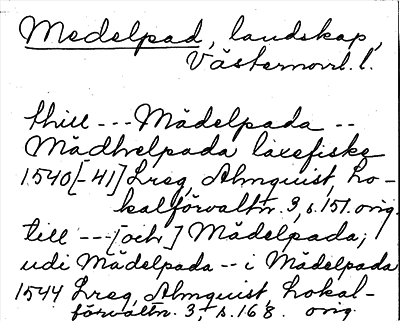 Medelpad, landskap,
Västernorrl. l.
thill --- Mädelpada --
Mädhelpada laxefiske
1540[-41] Lreg, Almquist, Lo-
kalförvaltn. 3, s. 151. orig.
till --- [och] Mädelpada;
udi Mädelpada -- i Mädelpada
1544 Lreg, Almquist, Lokal-
förvaltn. 3, s. 168. orig